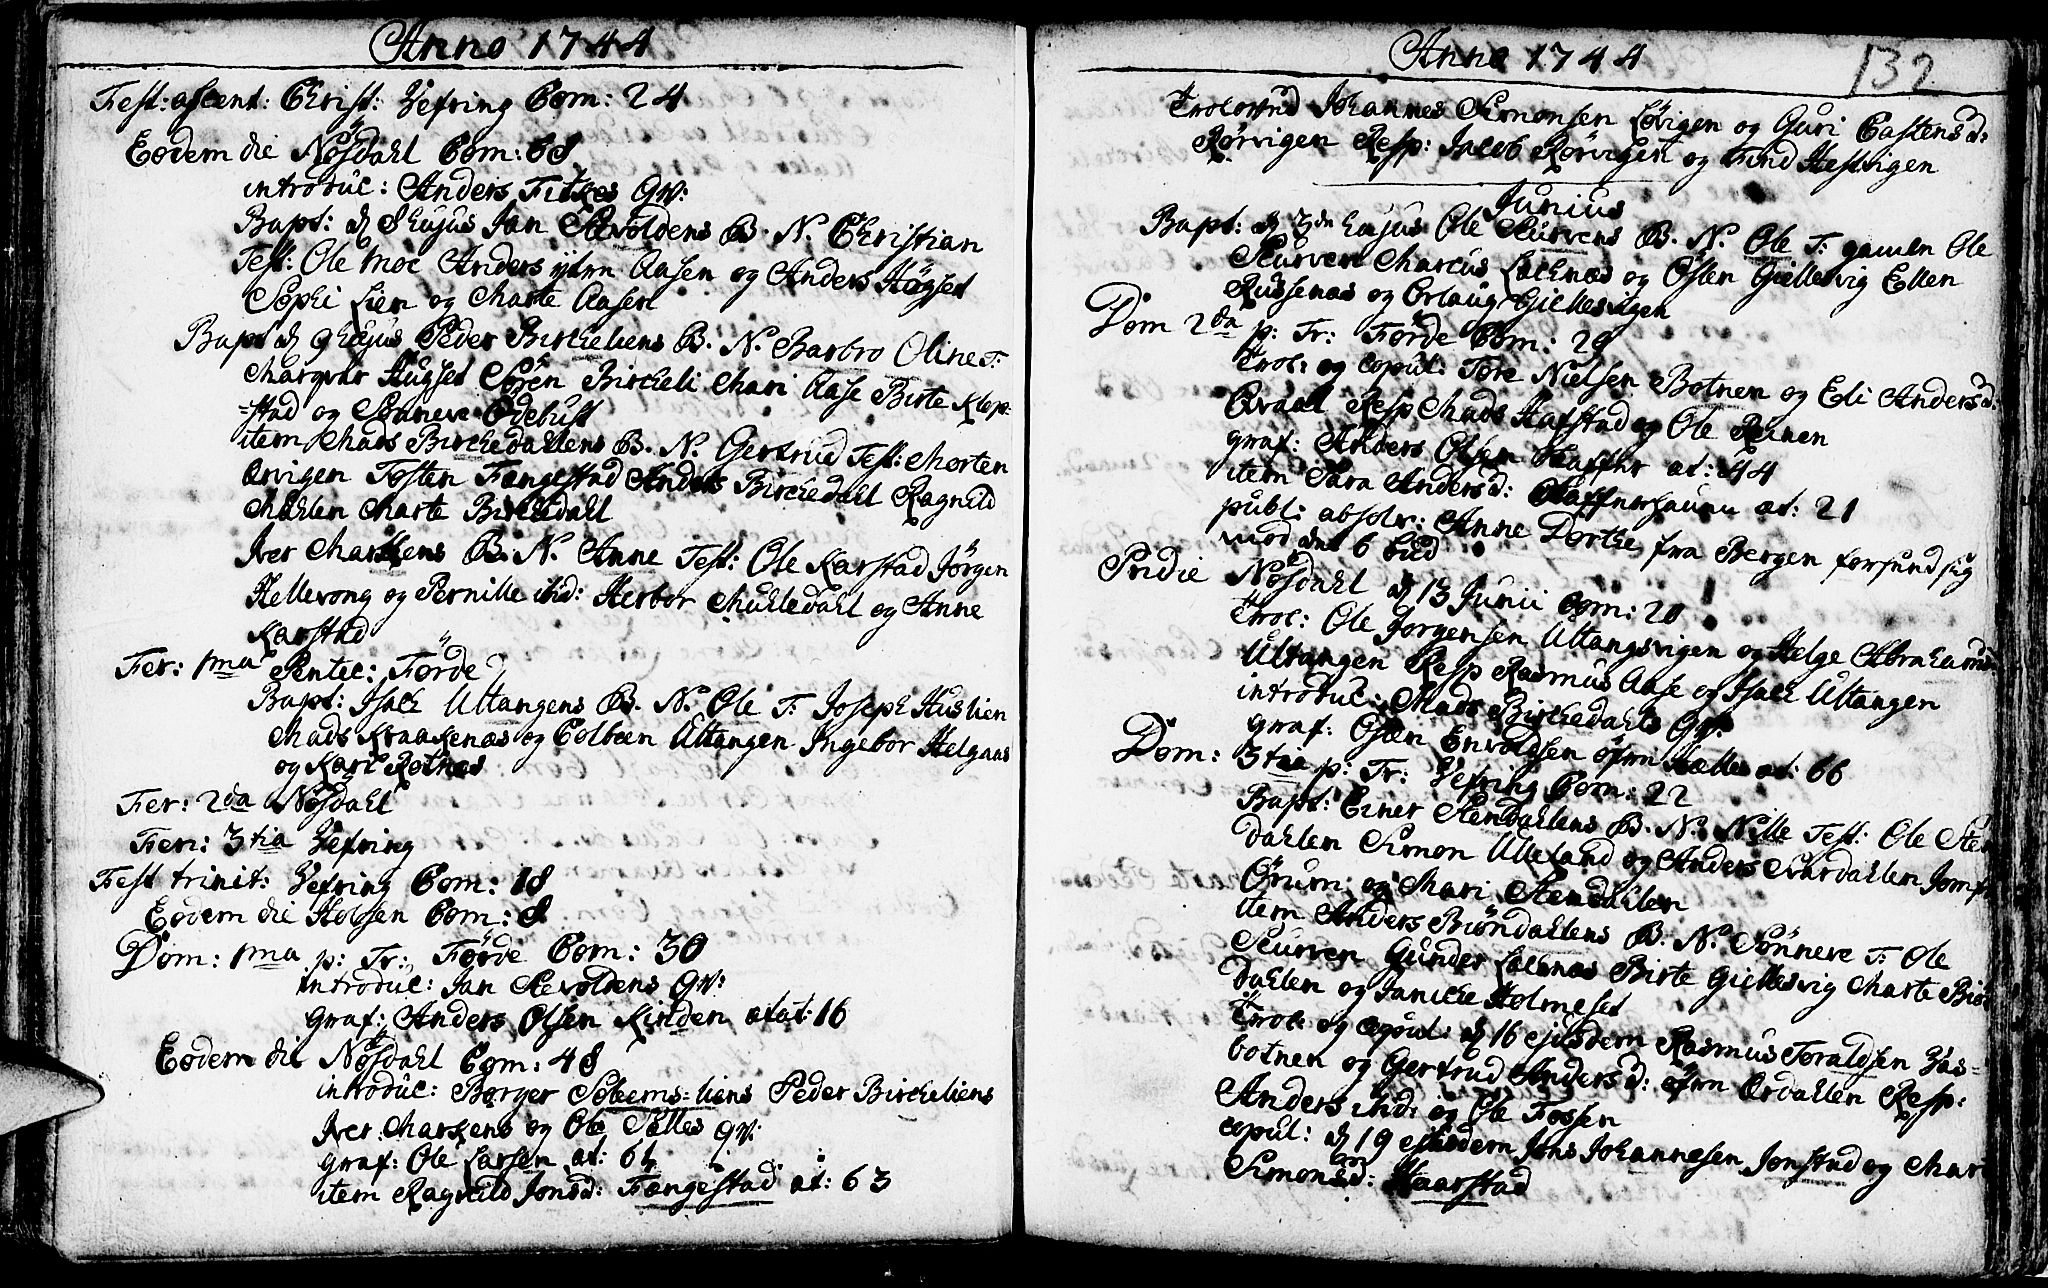 Anno 1744
Fest: ascent: Christ: Vefring Com: 24
Eodem die Nøsdahl Com: 68
introduc: Anders Fitkes qv:
Bapt: d 8 hujus Jan Sevoldens B. N. Christian
Test: Ole Moe Anders ytre Aasen og Anders Høgset
Sophi Lien og Marte Aasen
Bapt d 9 hujus Peder Birkeliens B. N. Barbro Oline T:
Margrar Hugset Søren Birkeli Mari Aase Birte Klep-
=stad og Sønneve Ødebust
item Mads Birkedahlens B. N. Gertrud Test: Morten
Ørvigen Tosten Fængestad Anders Birkedahl Ragnild
Mæhlen Marte Birkedahl
Iver Markens B. N. Anne Test: Ole Karstad Jørgen
Hellevong og Pernille ibid: Herbor Muhledahl og Anne
Karstad
Fer: 1ma Pentec: Førde
Bapt: Isach Ultangens B. N. Ole T. Joseph Huslien
Mads Kraakenæs og Colbeen Ultangen Ingebor Helgaas
og Kari Rotnes
Fer: 2da Nøsdahl
Fer: 3tia Vefring
Fest trinit: Vefring Com: 18
Eodem die Holsen Com: 8
Dom: 1ma p: Tr: Førde Com: 30
introduc: Jan Sevoldens qv:
graf: Anders Olsen Kinden ætat: 16
Eodem die Nøsdahl Com: 48
introduc: Børger Soleems=liens Peder Birkeliens
Iver Markens og Ole Solles qv:
graf: Ole Larsen æt: 61
item Ragnild Jonsd: Fængestad æt: 63
Anno 1744
132
Trolovud Johannes Simonsen Løvigen og Guri Castensd:
Rørvigen Resp: Jacob Rørvigen og Find Hestvigen
Junius
Bapt: d 3de hujus Ole Skurvens B. N. Ole T: gamlen Ole
Skurven Marcus Løchnæs og Østen Giellesvig Ellen
Russenæs og Orlaug Giellesvigen
Dom 2da p: Tr: Førde Com: 29
Trol: og copul: Tore Nielsen Botnen og Eli Andersd:
Qvaal Resp Mads Hafstad og Ole Reinen
graf: Anders Olsen æt: 44
item Sara Andersd: æt: 21
publ: absolv: Anne Dorthe fra Bergen forsund sig
mod det 6 bud
Pridie Nøsdahl d 13 Junii Com: 20
Trol: Ole Jørgensen Ultangsvigen og Helge Abrahams
Ultangen Resp Rasmus Aase og Isach Ultangen
introduc: Mads Birkedahls qv:
graf: Østen Envoldsen øfre Hælle æt: 66
Dom: 3tia p: Tr: Vefring Com: 22
Bapt: Einer Stendahlens B. N. Nille Test: Ole Sten
dahlen Simon Ulleland og Anders Svardahlen Jomfr
Ørum og Mari Stendahlen
item Anders Biøndahlens B. N. Sønneve T: Ole
Skurven Gunder Løchnæs Birte Giellesvig Marte Biøn
dahlen og Janicke Holmeset
Trol: og copul: d 16 ejusdem Rasmus Toraldsen Vas=
botnen og Gertrud Andersd: øfre Ørdahlen Resp:
Anders ibid: og Ole Fossen
copul: d 19 ejusdem Jens Johannesen Jonstad og Mari
Simonsd: Haarstad